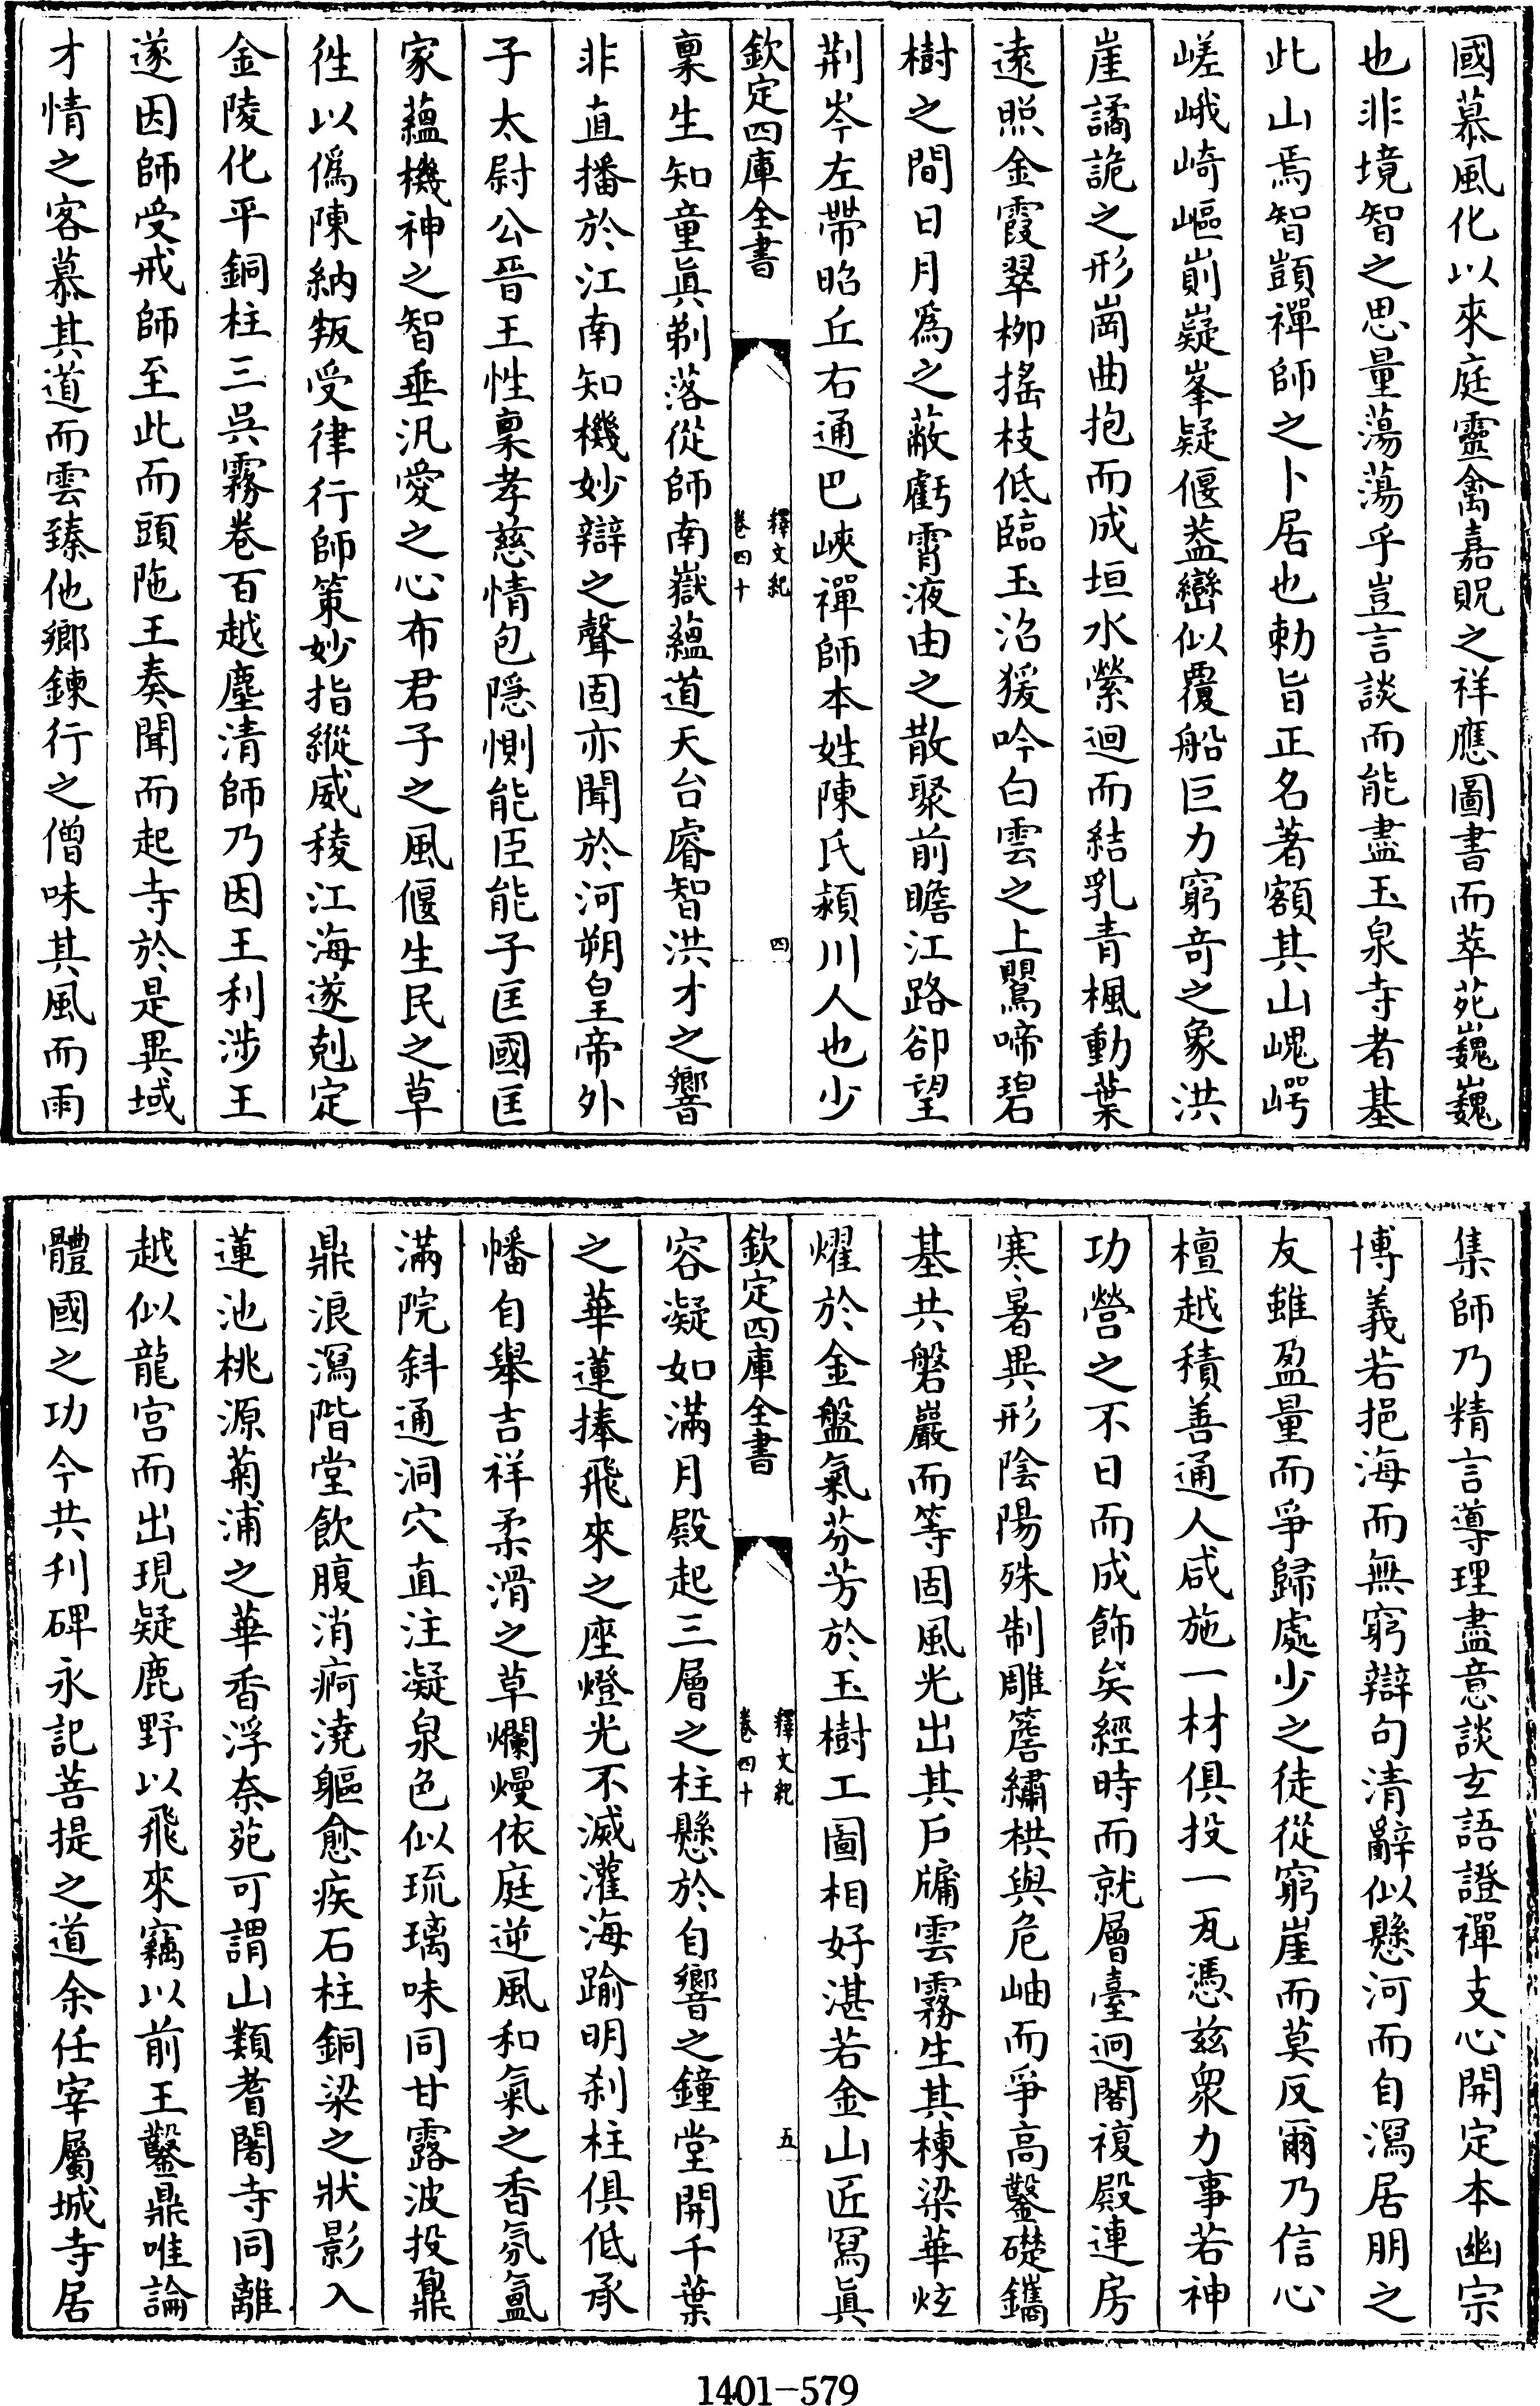 國慕風化以來庭靈禽嘉貺之祥應圖書而萃苑巍巍
也非境智之思量蕩蕩乎豈言談而能盡玉泉寺者基
此山焉智顗禪師之卜居也勅旨正名著額其山嵬崿
嵯峨崎嶇崱嶷峯疑偃葢巒似覆船巨力窮竒之象洪
崖譎詭之形崗曲抱而成垣水縈迴而結乳青楓動葉
逺照金霞翠栁搖枝低臨玉沼猨吟白雲之上鷪啼碧
樹之間日月為之蔽虧霄液由之散聚前瞻江路卻望
荆岑左帶昭丘右通巴峽禪師本姓陳氏潁川人也少
欽定四庫全書
釋文紀
卷四十
四
稟生知童眞剃落從師南嶽蘊道天台睿智洪才之響
非直播於江南知機妙辯之聲固亦聞於河朔皇帝外
子太尉公晉王性稟孝慈情包隠惻能臣能子匡國匡
家蘊機神之智垂汎愛之心布君子之風偃生民之草
徃以偽陳納叛受律行師策妙指縱威稜江海遂剋定
金陵化平銅柱三吳霧卷百越塵清師乃因王利涉王
遂因師受戒師至此而頭陁王奏聞而起寺於是異域
才情之客慕其道而雲臻他鄉鍊行之僧味其風而雨
集師乃精言導理盡意談玄語證禪支心開定本幽宗
博義若挹海而無窮辯句清辭似懸河而自瀉居朋之
友雖盈量而爭歸處少之徒從窮崖而莫反爾乃信心
檀越積善通人咸施一材俱投一瓦憑兹衆力事若神
功營之不日而成飾矣經時而就層臺迥閣複殿連房
寒暑異形陰陽殊制雕簷繡栱與危岫而爭高鑿礎鐫
基共磐巖而等固風光出其戶牖雲霧生其棟梁華炫
燿於金盤氣芬芳於玉樹工圖相好湛若金山匠冩眞
欽定四庫全書
釋文紀
卷四十
五
容凝如滿月殿起三層之柱懸於自響之鐘堂開千葉
之華蓮捧飛來之座燈光不滅灌海踰明刹柱俱低承
幡自舉吉祥柔滑之草爛熳依庭逆風和氣之香氛氳
滿院斜通洞穴直注凝泉色似琉璃味同甘露波投鼐
鼎浪瀉階堂飲腹消痾澆軀愈疾石柱銅梁之狀影入
蓮池桃源菊浦之華香浮奈苑可謂山類耆闍寺同離
越似龍宫而出現疑鹿野以飛來竊以前王鑿鼎唯論
體國之功今共刋碑永記菩提之道余任宰屬城寺居
1401-579